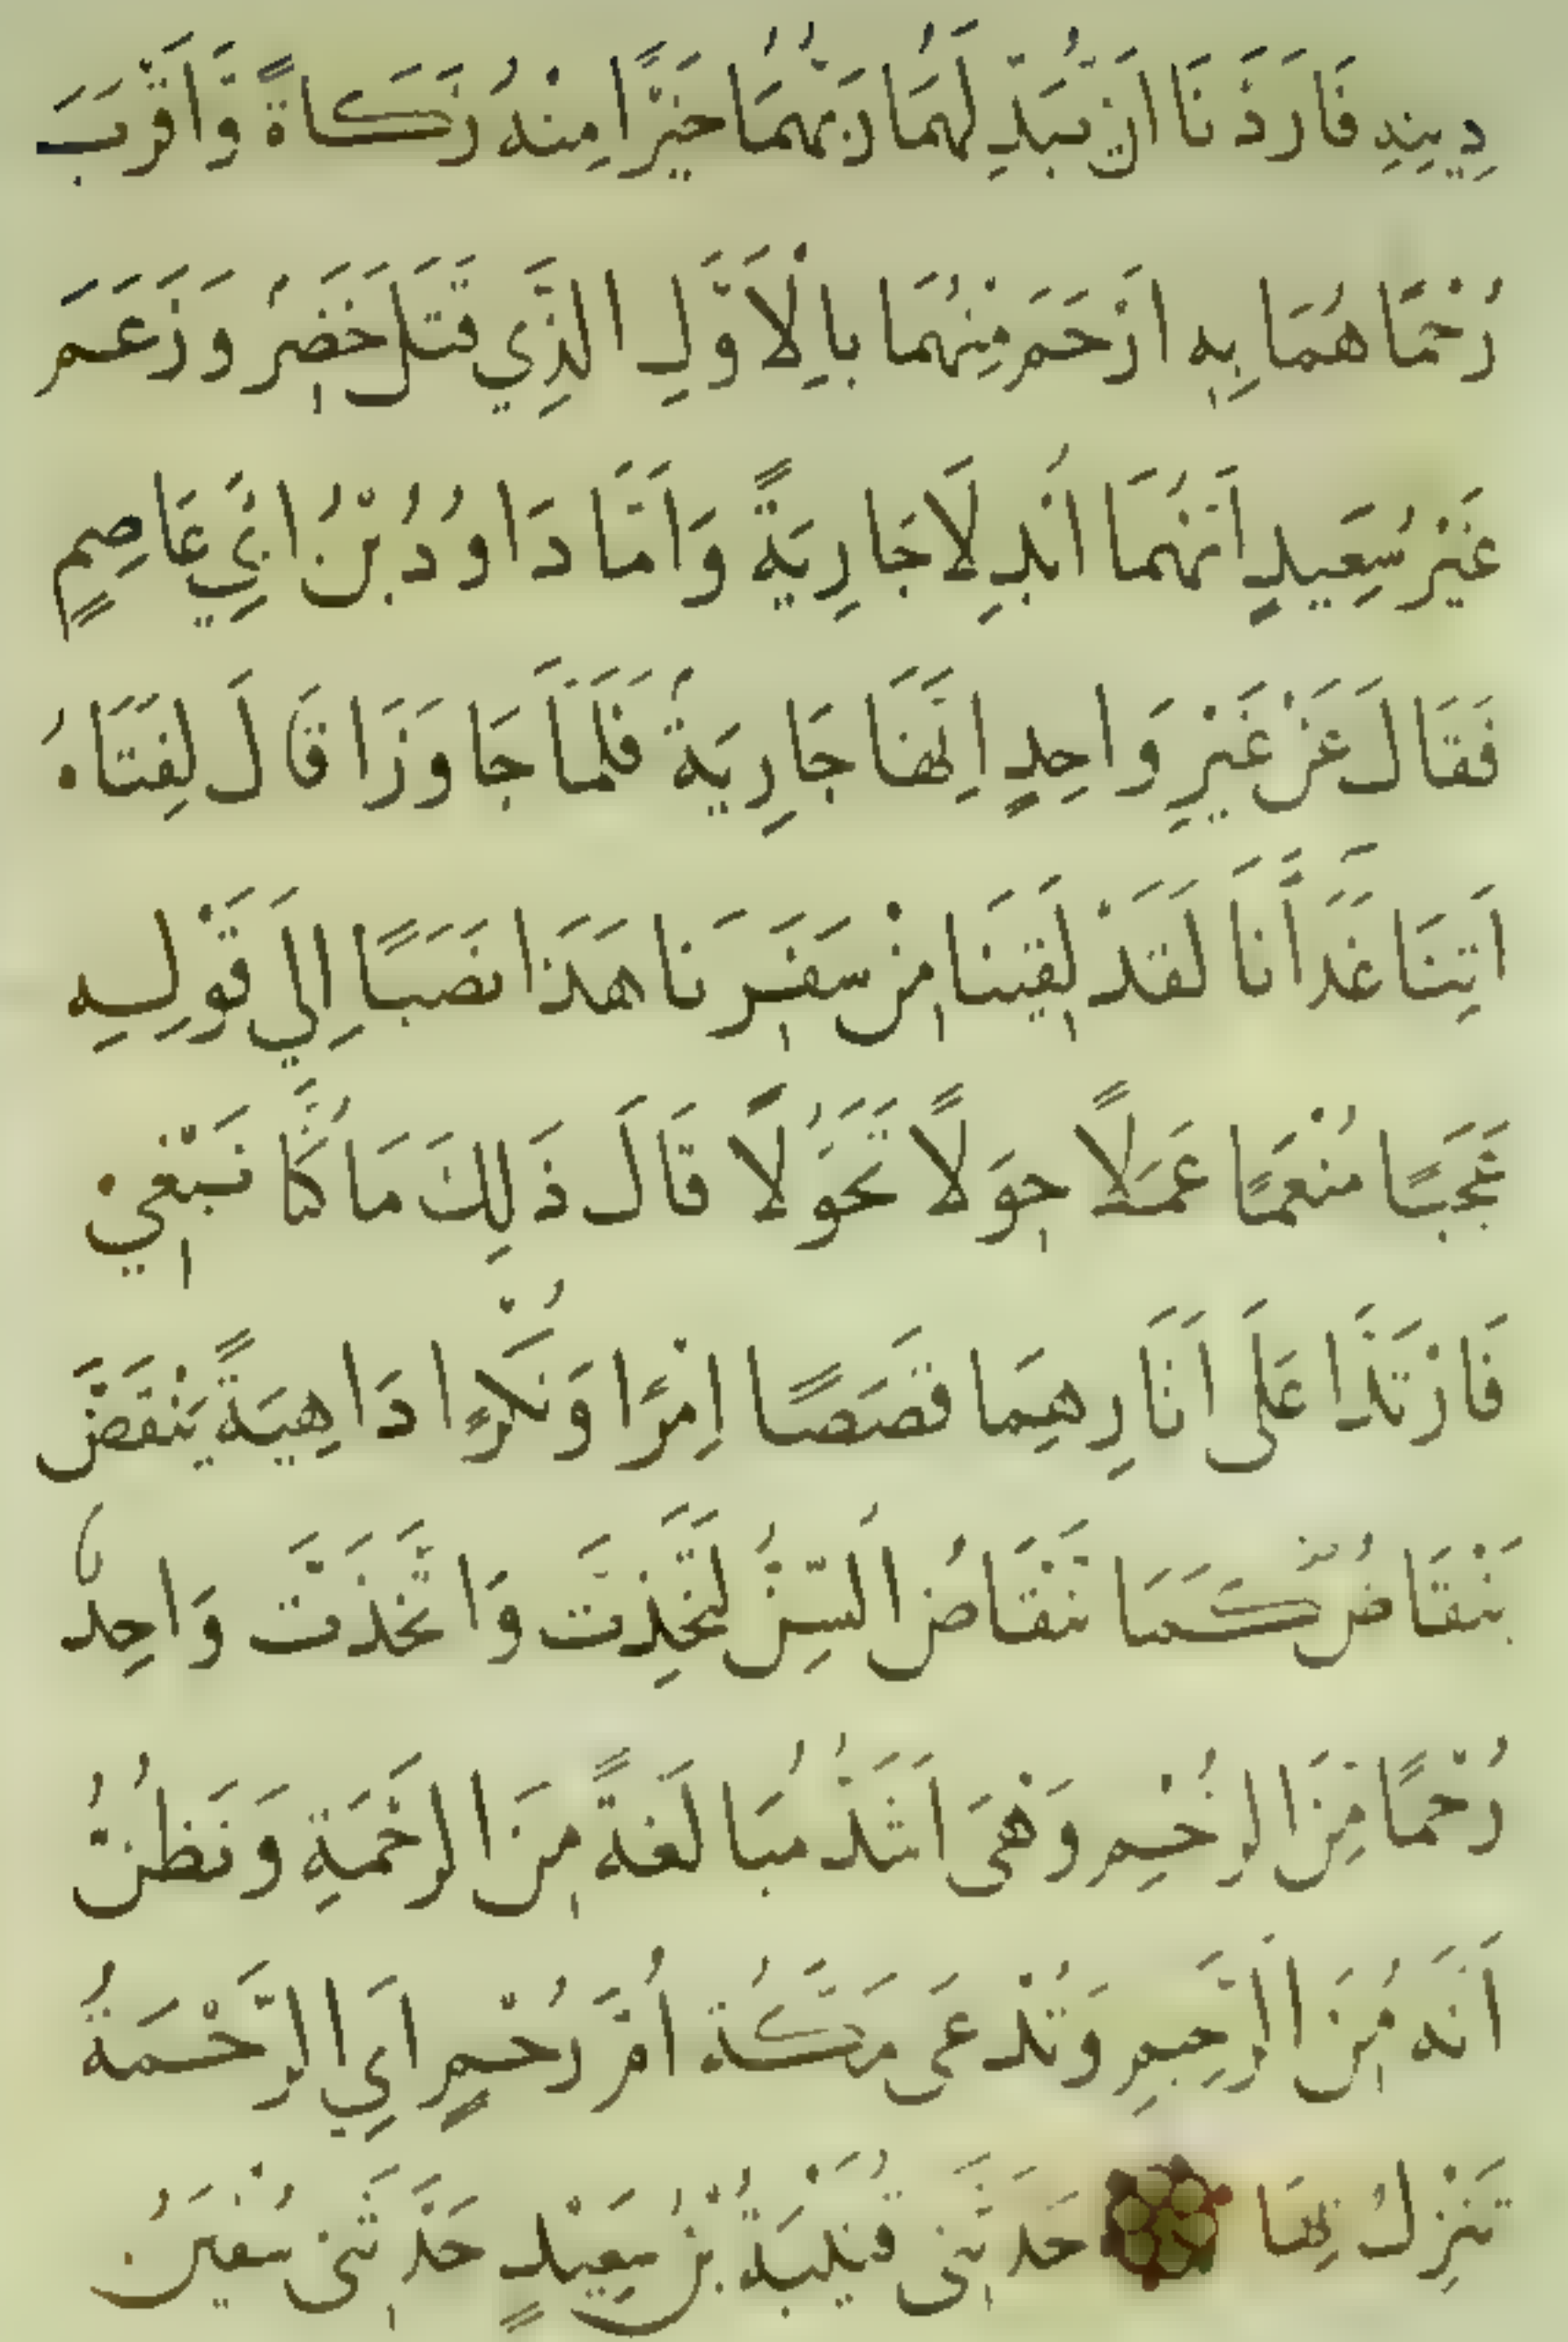 دِينِهِ فَارَدْنَا اَنْ نُبَدِّلَهُمَا رَبُّهُمَا خَيْرًا مِنْهُ زَكَاةً وَاَقْرَبَ
رُحْمًا هُمَا بِهِ اَرْحَمَ مِنْهُمَا بِالْاَوَّلِ الَّذِي قَتَلَ خَضِرُ وَزَعَمَ
غَيْرُ سَعِيدٍ اَنَّهُمَا اُبْدِلَا جَارِيَةً وَاَمَّا دَاوُدُ بْنُ اَبِي عَاصِمٍ
فَقَالَ عَنْ غَيْرِ وَاحِدٍ اِنَّهَا جَارِيَةٌ فَلَمَّا جَاوَزَا قَالَ لِفَتَاهُ
اَتِنَا غَدَاَنَا لَقَدْ لَقِينَا مِنْ سَفَرِنَا هَذَا نَصَبًا اِلَى قَوْلِهِ
عَجَبًا صُنْعًا عَمَلًا حِوَلًا تَحَوُّلًا قَالَ ذَلِكَ مَا كُنَّا نَبْغِي
فَارْتَدَّا عَلَى اَثَارِهِمَا قَصَصًا اِمْرًا وَنُكْرًا دَاهِيَةً يَنْقَضَّ
يَنْقَاضُ كَمَا تَنْقَاضُ السِّنُّ لَتَخِذْتَ وَاتَّخَذْتَ وَاحِدٌ
رُحْمًا مِنَ الرُّحْمِ وَهْيَ اَشَدُّ مُبَالَغَةً مِنَ الرَّحْمَةِ وَنَظُنُّ
اَنَّهُ مِنَ الرَّحِيمِ وَتُدْعَى مَكَّةُ اُمَّ رُحْمٍ اَيِ الرَّحْمَةُ
تَنْزِلُ بِهَا حَدَّثَنِي قُتَيْبَةُ بْنُ سَعِيدٍ حَدَّثَنِي سُفْيَنُ